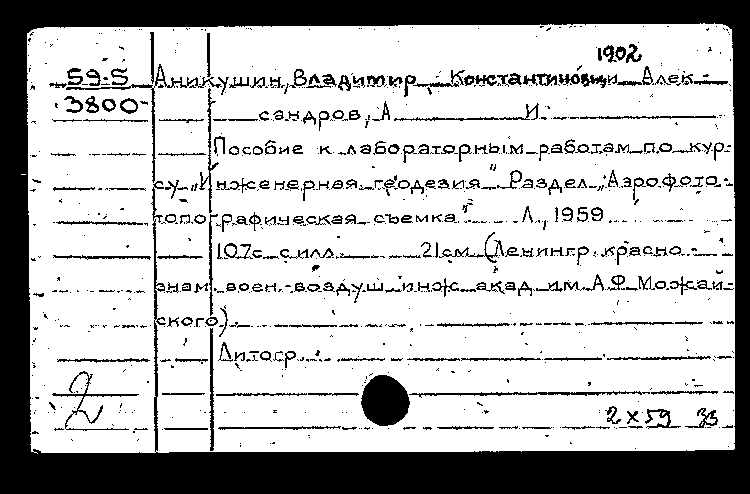 1902
59-5 Аникушин, Владимир Константинович и Алек-
3800- сандров, А. И.
Пособие к лабораторным работам по кур-
су „Инженерная геодезия". Раздел „Аэрофото-
топографическая съемка". Л., 1959
107с. с илл. 21см. (Ленингр. красно-
знам. воен.-воздуш. инж. акад. им. А.Ф. Можай-
ского).
Литогр.
2
2 X 59